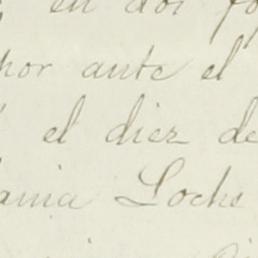 en dos fo
hor ante el
el diez de
ania Loche